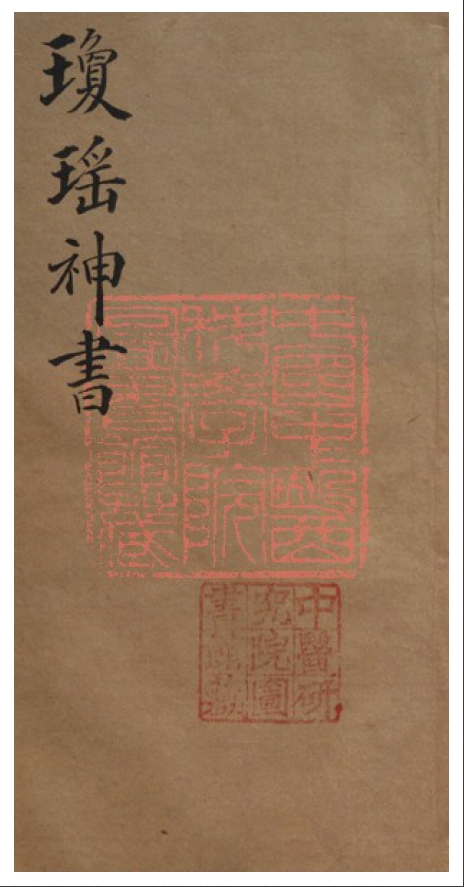 瓊瑶神書
中國中醫
科學院
圖書館藏
中醫研
究院圖
書館藏